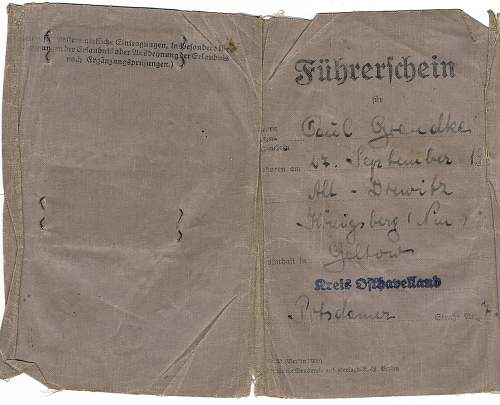 weitere amtliche Eintragungen, in besondere
der Erlaubnis oder Ausdehnung der Erlaubnis
nach Ergänzungsprüfungen.)
Führerschein
für
Paul Grandke
27. September
Alt - Drewitz
Königsberg (Nm)
Geltow
Kreis Osthavelland
Potsdamer Straße Nr. 7